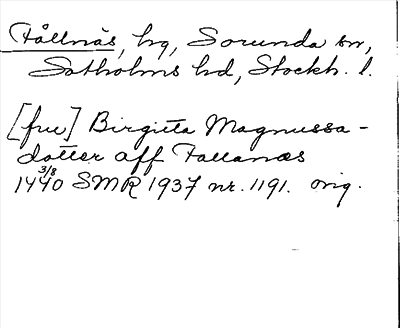 Fållnäs, hg, Sorunda sn,
Sotholms hd, Stockh. l.
[fru] Birgitta Magnussa-
dotter aff Fallanæs
1440 3/8 SMR 1937 nr. 1191. orig.